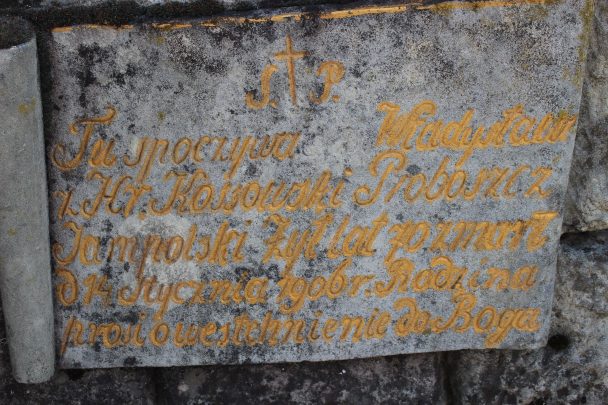 Ś. P.
Tu spoczywa Władysław
z Hr. Kossowski Proboszcz
Jampolski Żył lat 70 zmarł
d 14 Stycznia 1906 r. Rodzina
prosi o westchnienie do Boga